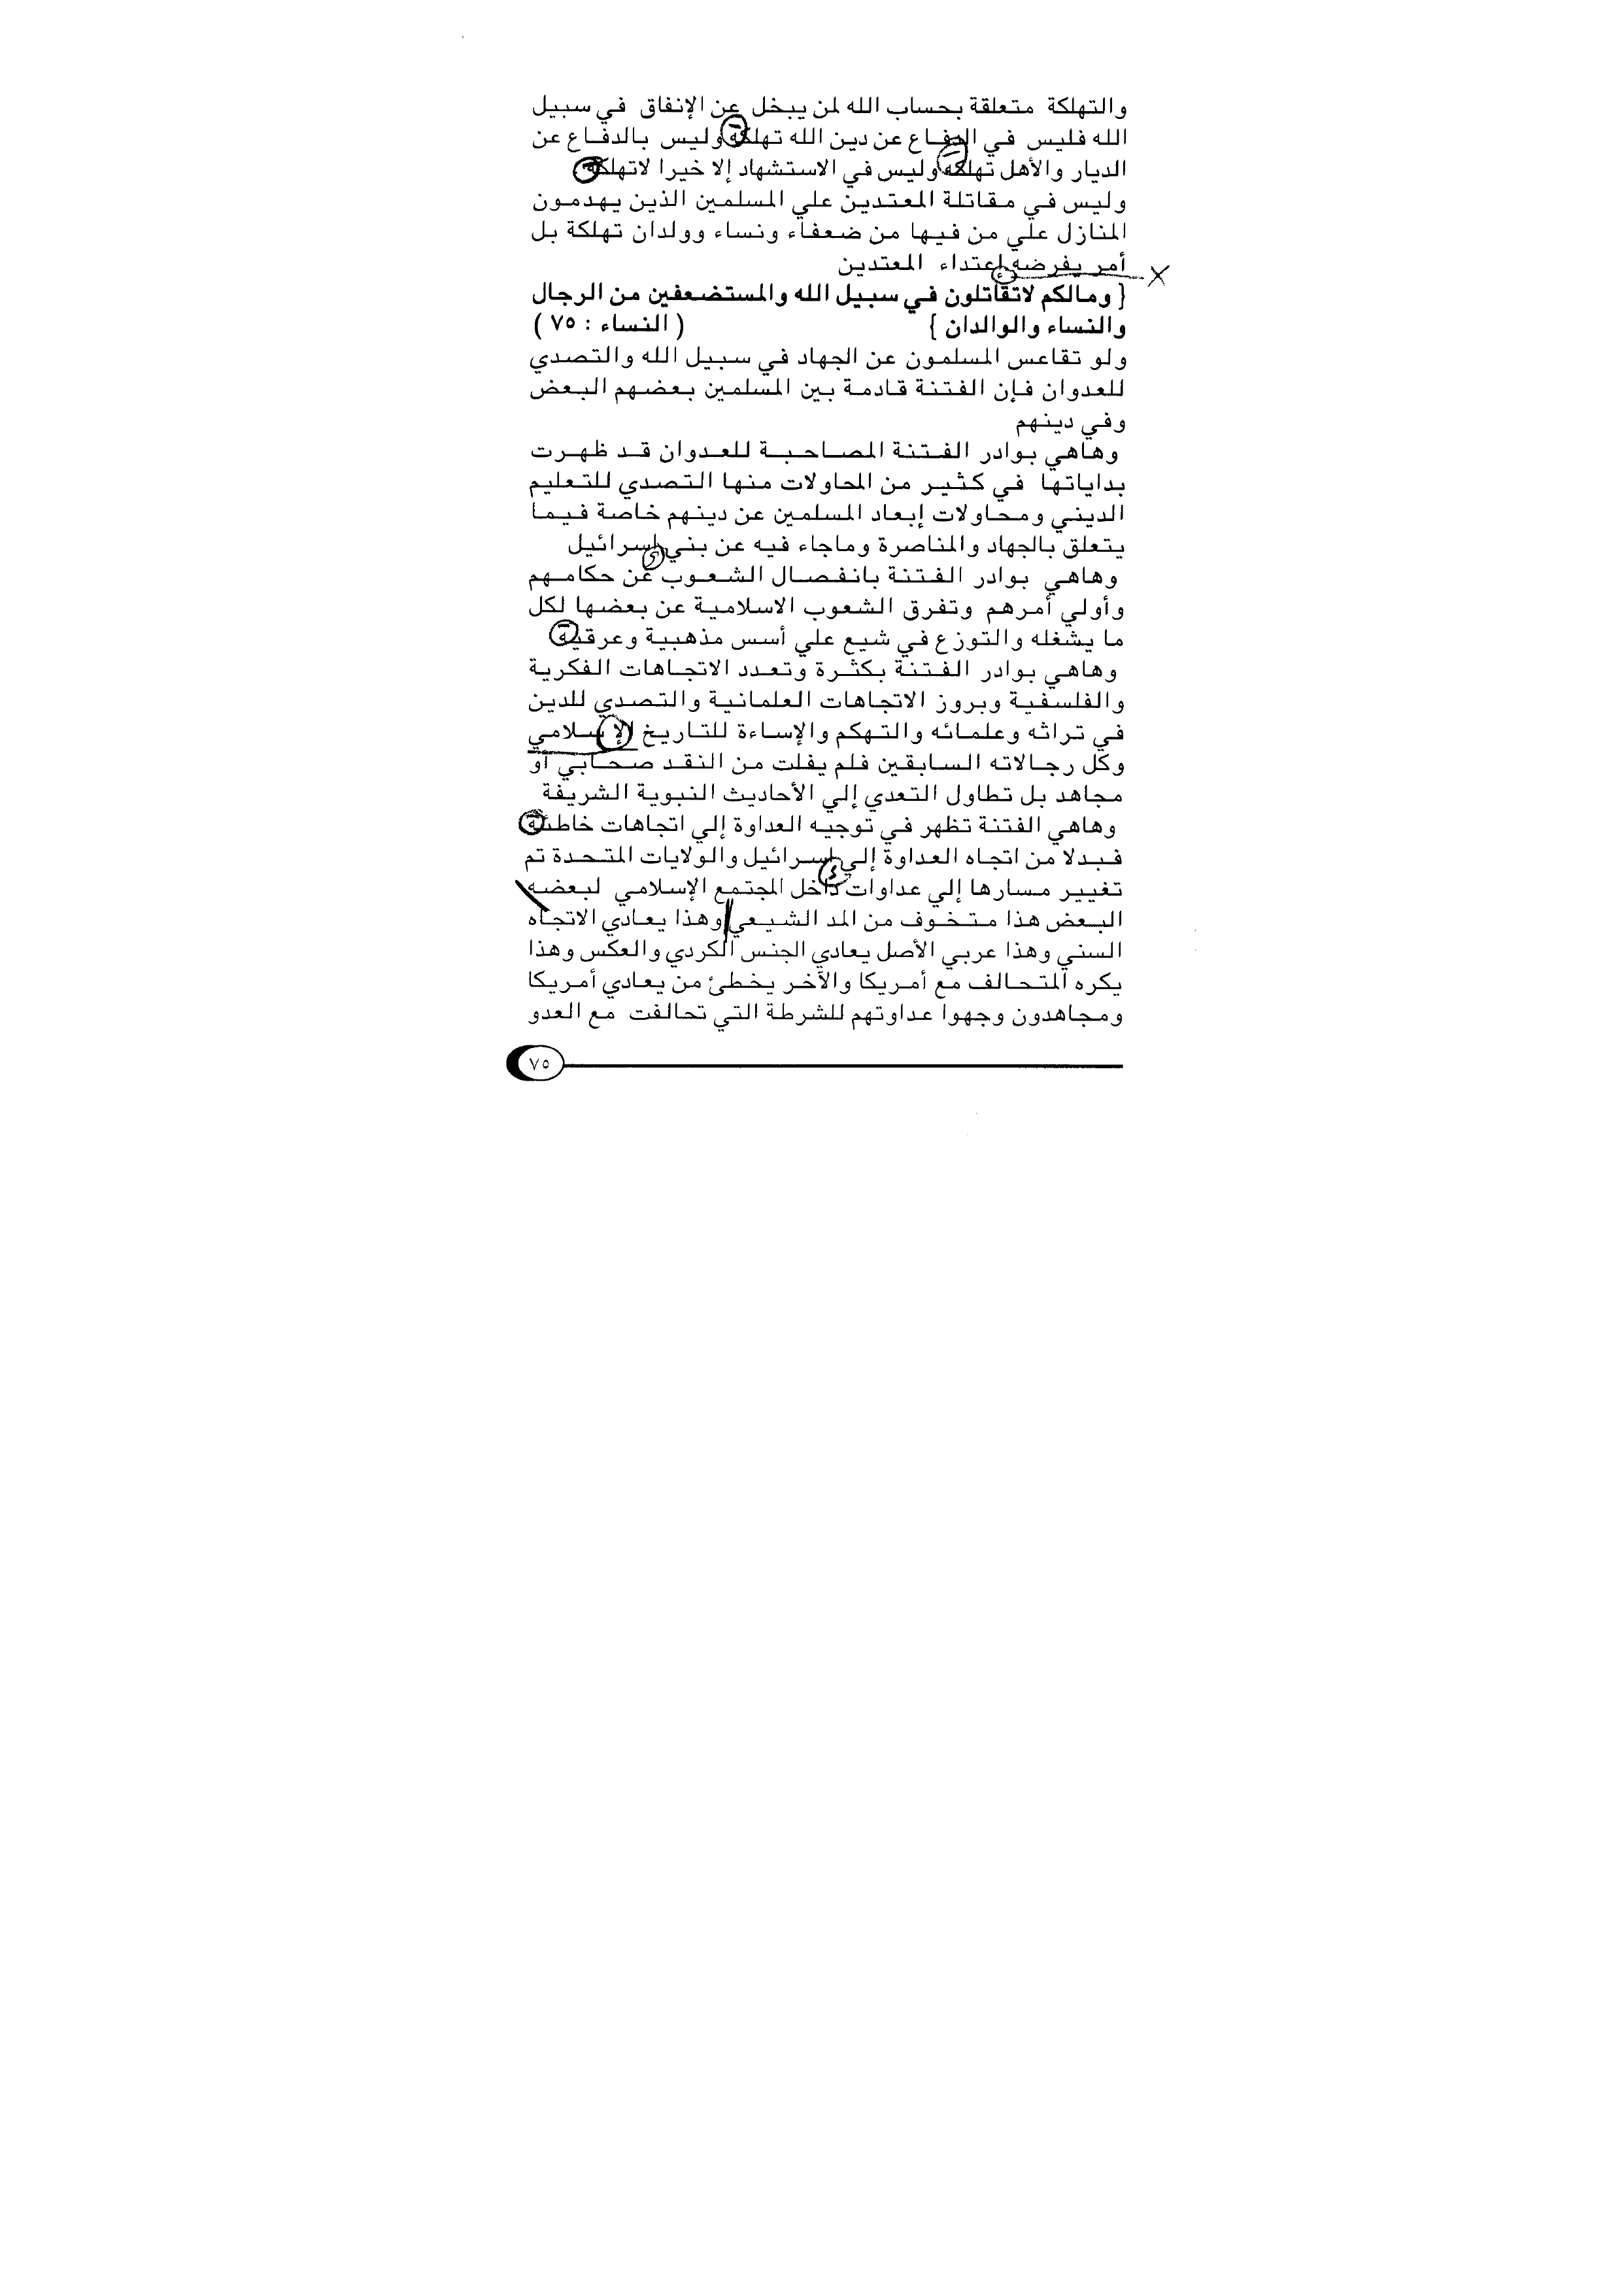 والتهلكة متعلقة بحساب الله لمن يبخل عن الإنفاق في سبيل
الله فليس في الدفاع عن دين الله تهلكة وليس بالدفاع عن
الديار والأهل تهلكة وليس في الاستشهاد إلا خيرا لاتهلكة
وليس في مقاتلة المعتدين علي المسلمين الذين يهدمون
المنازل علي من فيها من ضعفاء ونساء وولدان تهلكة بل
أمر يفرضه إعتداء المعتدين
{ ومالكم لاتقاتلون في سبيل الله والمستضعفين من الرجال
والنساء والوالدان } ( النساء : ٧٥ )
ولو تقاعس المسلمون عن الجهاد في سبيل الله والتصدي
للعدوان فإن الفتنة قادمة بين المسلمين بعضهم البعض
وفي دينهم
وهاهي بوادر الفتنة المصاحبة للعدوان قد ظهرت
بداياتها في كثير من المحاولات منها التصدي للتعليم
الديني ومحاولات إبعاد المسلمين عن دينهم خاصة فيما
يتعلق بالجهاد والمناصرة وماجاء فيه عن بني إسرائيل
وهاهي بوادر الفتنة بانفصال الشعوب عن حكامهم
وأولي أمرهم وتفرق الشعوب الاسلامية عن بعضها لكل
ما يشغله والتوزع في شيع علي أسس مذهبية وعرقية
وهاهي بوادر الفتنة بكثرة وتعدد الاتجاهات الفكرية
والفلسفية وبروز الاتجاهات العلمانية والتصدي للدين
في تراثه وعلمائه والتهكم والإساءة للتاريخ الإسلامي
وكل رجالاته السابقين فلم يفلت من النقد صحابي أو
مجاهد بل تطاول التعدي إلي الأحاديث النبوية الشريفة
وهاهي الفتنة تظهر في توجيه العداوة إلي اتجاهات خاطئة
فبدلا من اتجاه العداوة إلي إسرائيل والولايات المتحدة تم
تغيير مسارها إلي عداوات داخل المجتمع الإسلامي لبعضه
البعض هذا متخوف من المد الشيعي وهذا يعادي الاتجاه
السني وهذا عربي الأصل يعادي الجنس الكردي والعكس وهذا
يكره المتحالف مع أمريكا والآخر يخطئ من يعادي أمريكا
ومجاهدون وجهوا عداوتهم للشرطة التي تحالفت مع العدو
٧٥